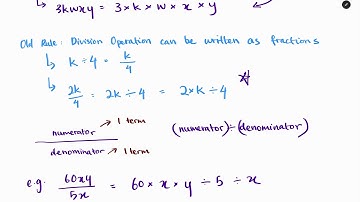 ↳ 3kwxy = 3 × k × w × x × y
Old Rule: Division Operation can be written as fractions
↳ k ÷ 4 = k/4
↳ 2k/4 = 2k ÷ 4 = 2 × k ÷ 4
numerator → 1 term
denominator → 1 term
(numerator) ÷ (denominator)
e.g. 60xy/5x = 60 × x × y ÷ 5 ÷ x